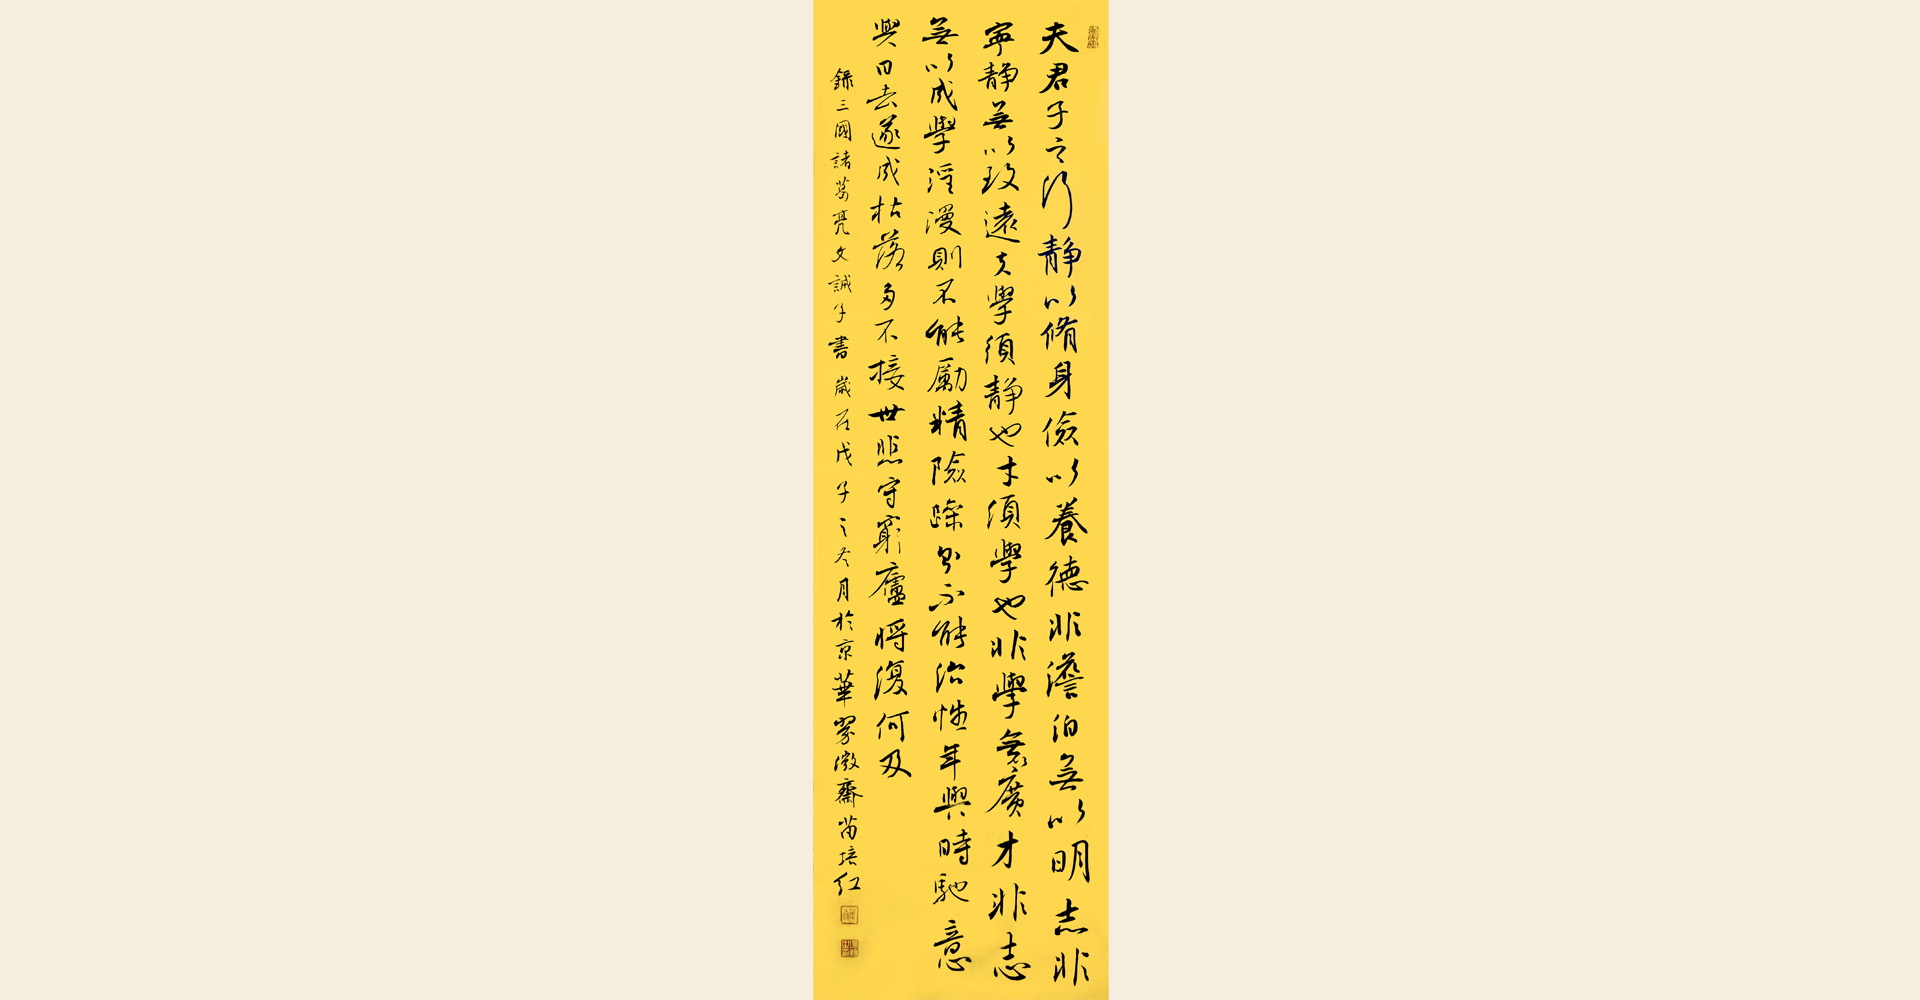 夫君子之行靜以脩身儉以養德非澹泊無以明志非
寧靜無以致遠夫學須靜也才須學也非學無以廣才非志
無以成學淫漫則不能勵精險躁則不能治性年與時馳意
與日去遂成枯落多不接世悲守窮廬將復何及
錄三國諸葛亮文誡子書歲在戊子之冬月於京華翠微齋苗培紅